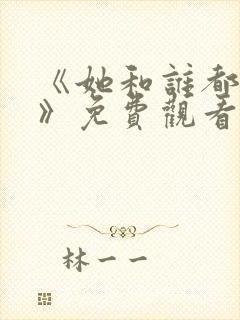 《她和誰都
》免費觀看
林一一